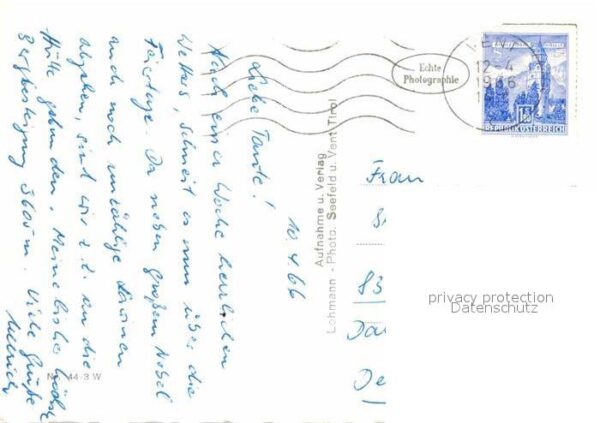 10.4.66
Liebe Tante!
Nach einer Woche herrlichen
Wetters, schneit es nun über die
Feiertage. Da neben großem Nebel
auch noch unzählige Lawinen
abgehen, sind wir z.Z. an die
Hütte gebunden. Meine bisher höchste
Bergbesteigung 3600 m. Viele Grüße
Ullrich
Aufnahme u. Verlag
Lohmann - Photo, Seefeld u. Vent/Tirol
Echte
Photographie
VENT
12-4
1966
REPUBLIK ÖSTERREICH
Frau
83
Da
De
privacy protection
Datenschutz
44 3 W